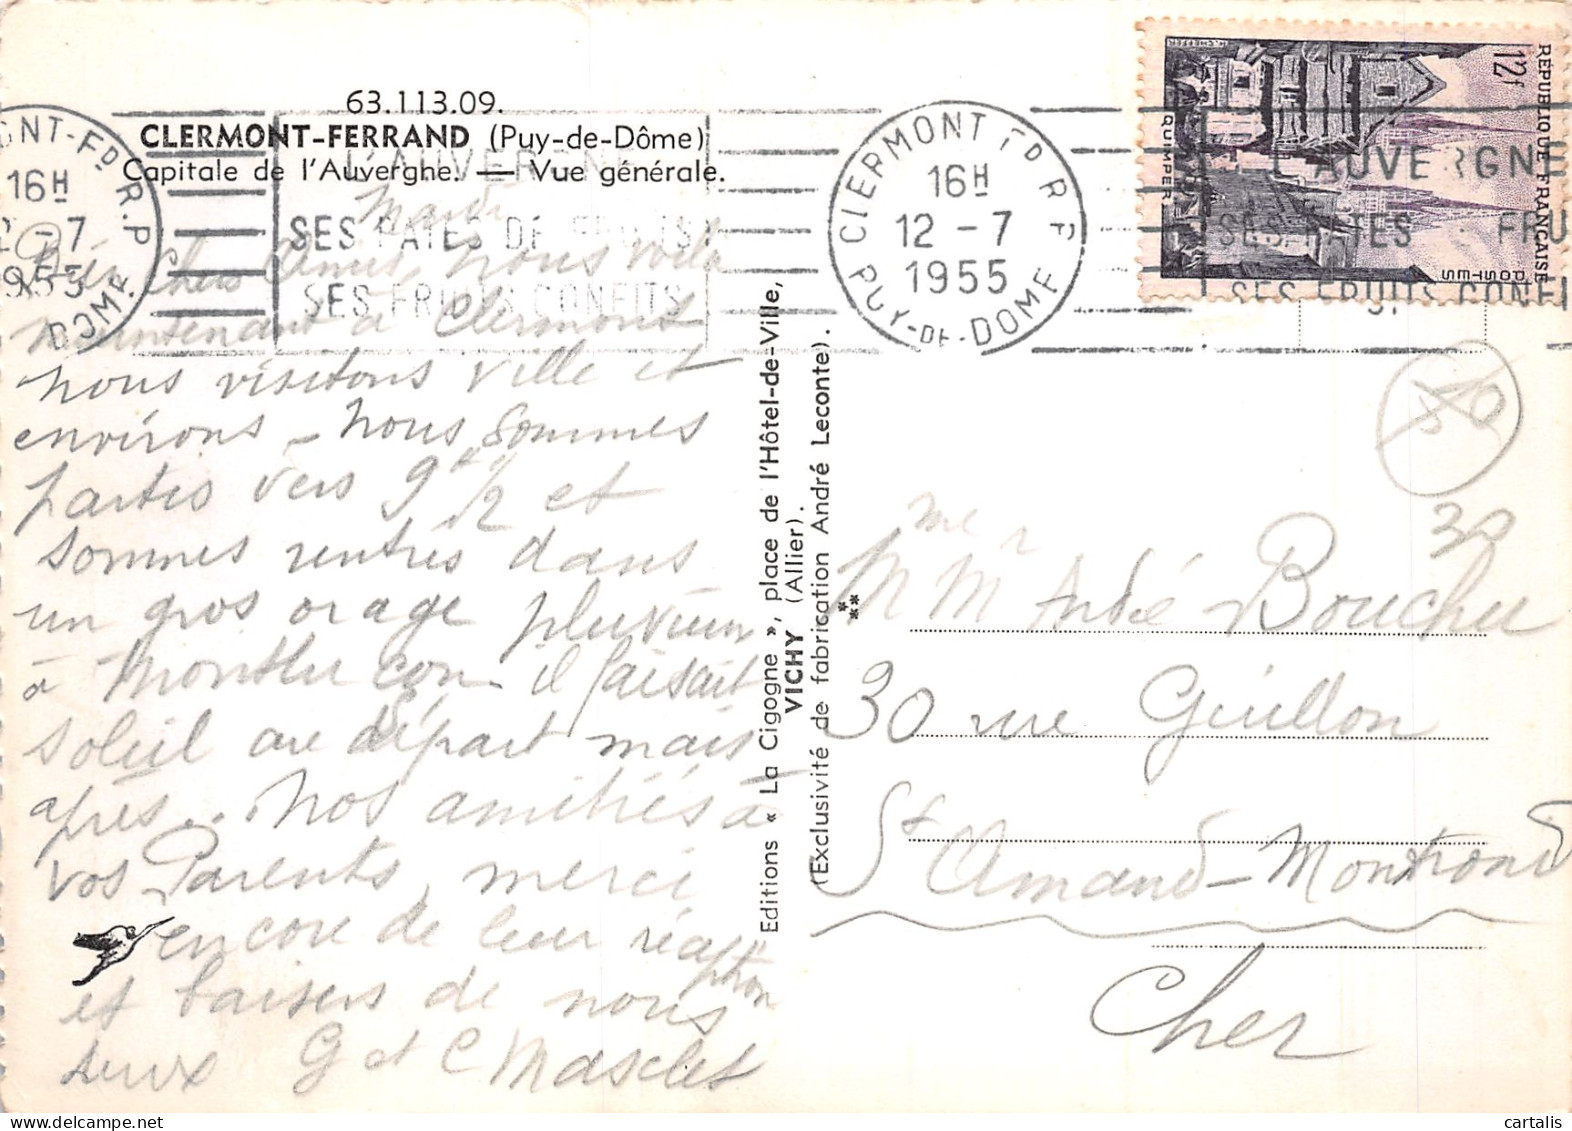 63.113.09.
CLERMONT-FERRAND (Puy-de-Dôme)
Capitale de l'Auvergne. — Vue générale.
Mardi
Bien Chers Amis, nous voilà
maintenant à Clermont
nous visitons ville et
environs – nous sommes
partis vers 9h 1/2 et
sommes rentrés dans
un gros orage pluvieux
à Montluçon – il faisait
soleil au départ mais
après... Nos amitiés à
vos Parents, merci
encore de leur réception
et baisers de nous
deux G et C Masclet
Editions « La Cigogne », place de l'Hôtel-de-Ville,
VICHY (Allier).
(Exclusivité de fabrication André Leconte).
CLERMONT FD R.P.
16H
12 -7
1955
PUY-DE-DOME
L'AUVERGNE
SES PATES DE FRUITS
SES FRUITS CONFITS
CLERMONT FD R P
16H
12 -7
1955
PUY-DE-DOME
L'AUVERGNE
SES PATES FRU
SES FRUITS CONFI
12f
REPUBLIQUE FRANÇAISE
POSTES
QUIMPER
H. CHEFFER
50
30
Mr Mme André Bouchu
30 rue Guillon
St Amand-Montrond
Cher
cartalis